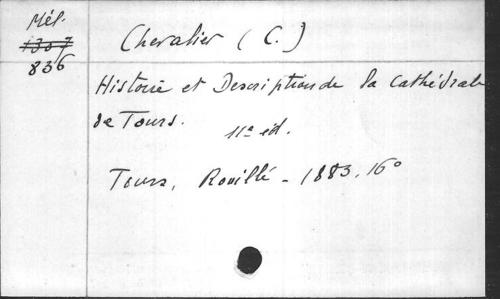 Mél.
1307
836
Chevalier (C.)
Histoire et Description de la Cathédrale
de Tours.
11e éd.
Tours, Rouillé - 1883. 16°